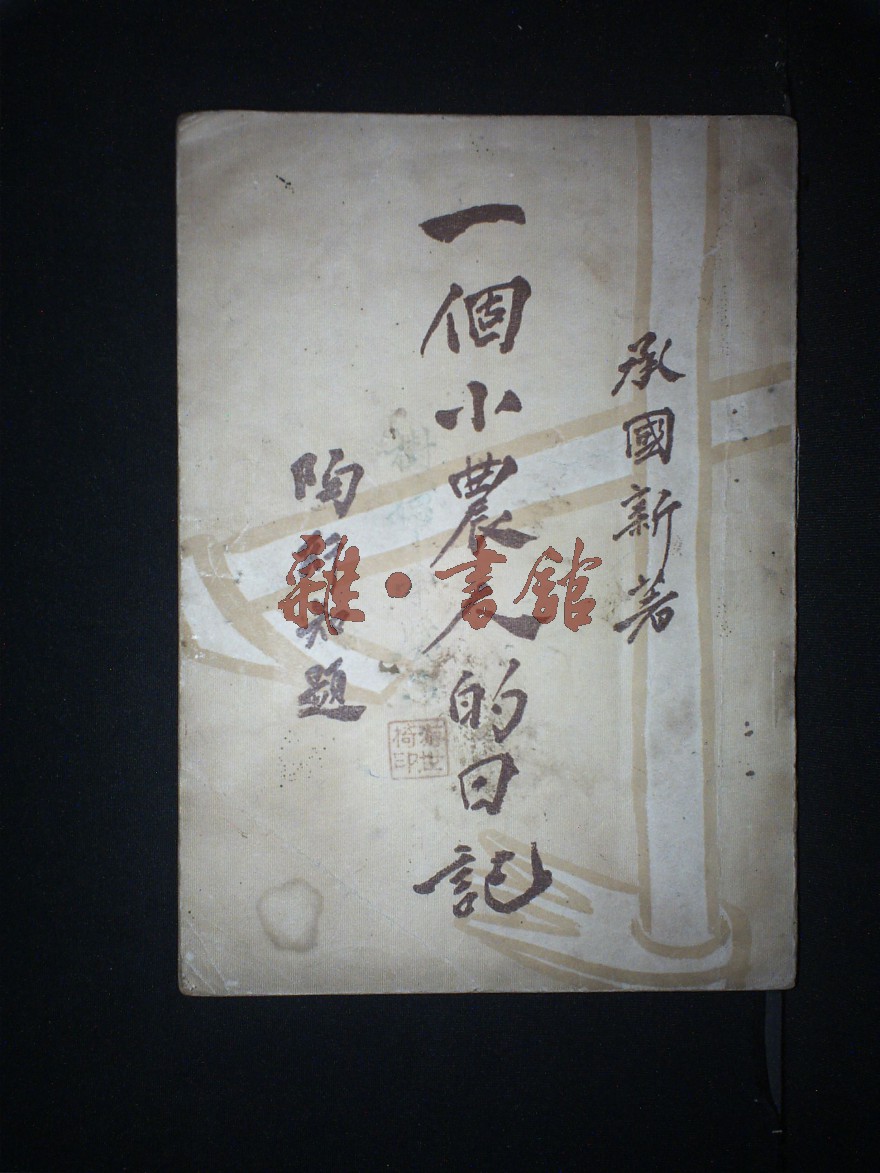 承國新著
一個小農人的日記
陶題
世椅印
雜·書館